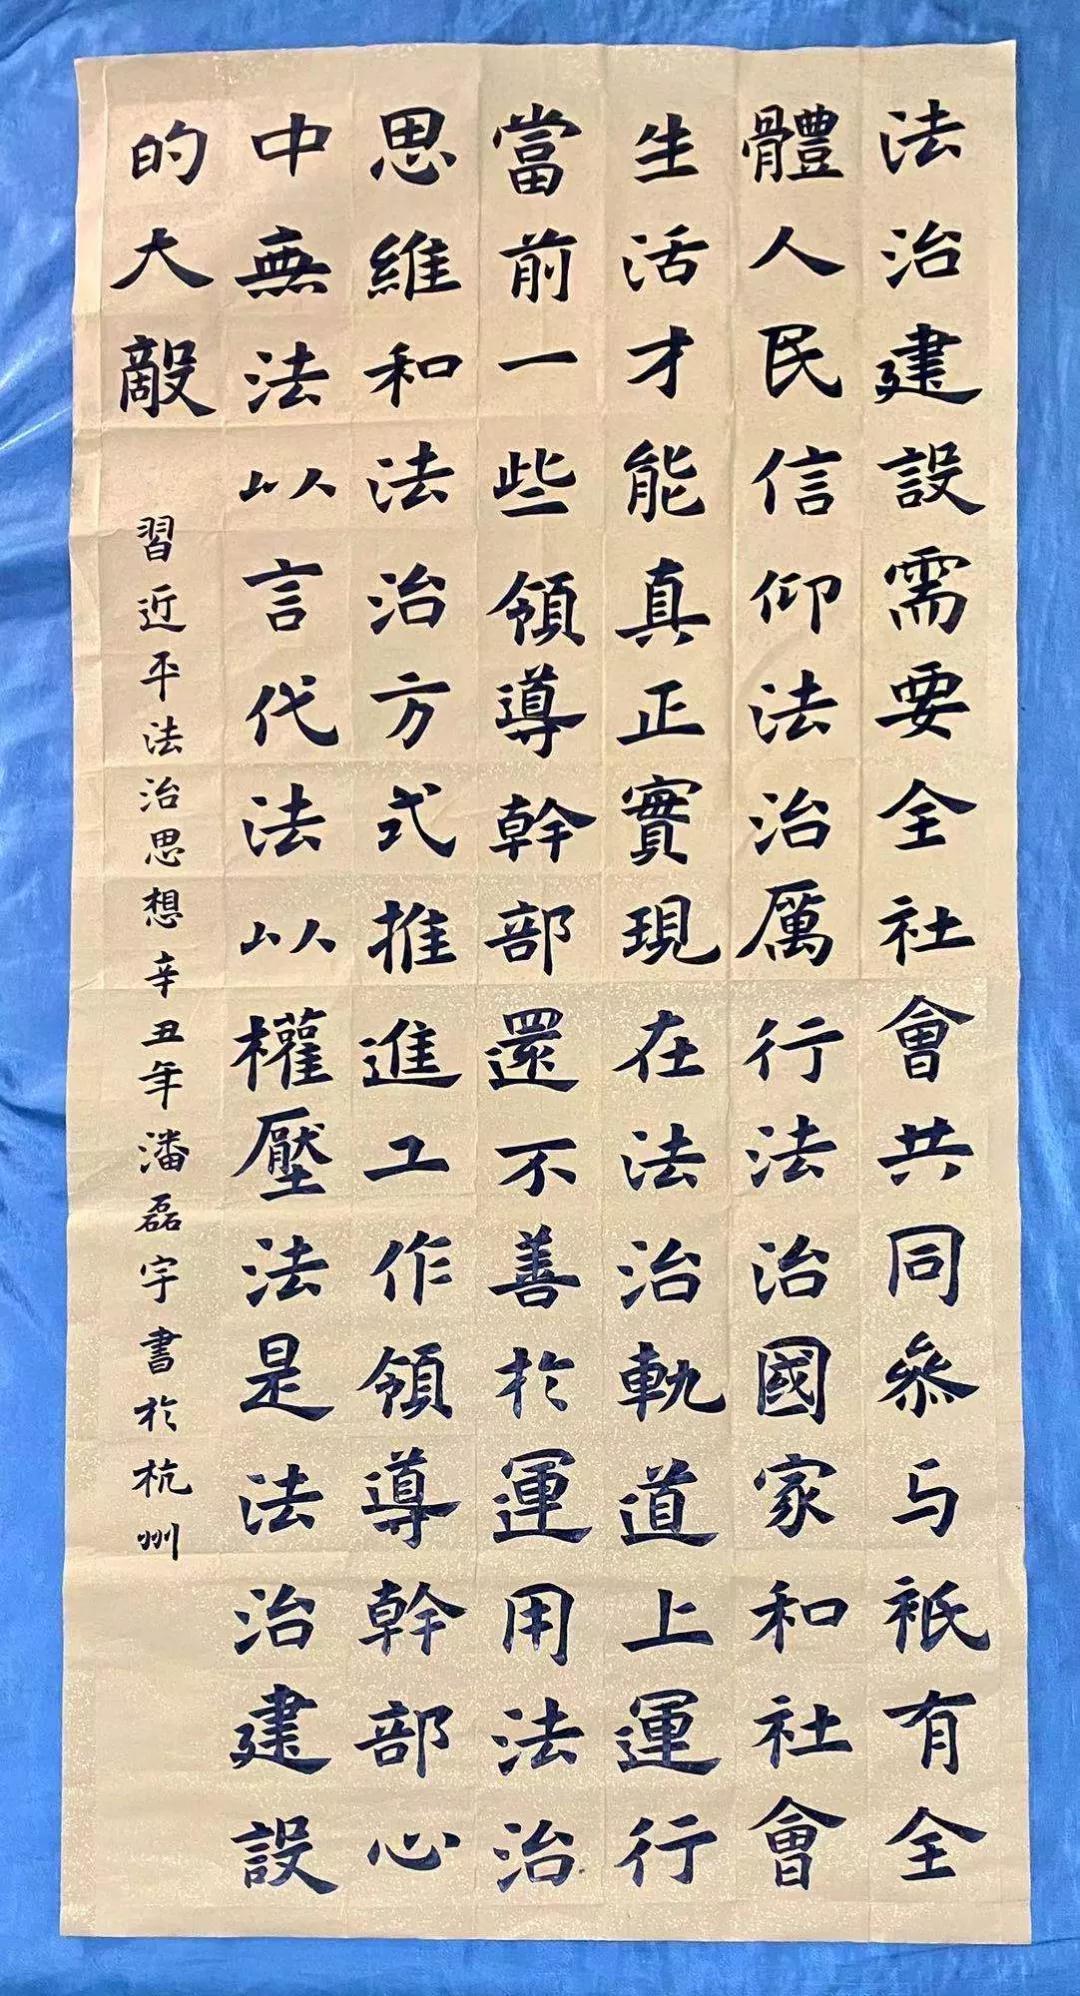 法治建設需要全社會共同參与衹有全
體人民信仰法治厲行法治國家和社會
生活才能真正實現在法治軌道上運行
當前一些領導幹部還不善於運用法治
思維和法治方式推進工作領導幹部心
中無法以言代法以權壓法是法治建設
的大敵
習近平法治思想辛丑年潘磊宇書於杭州